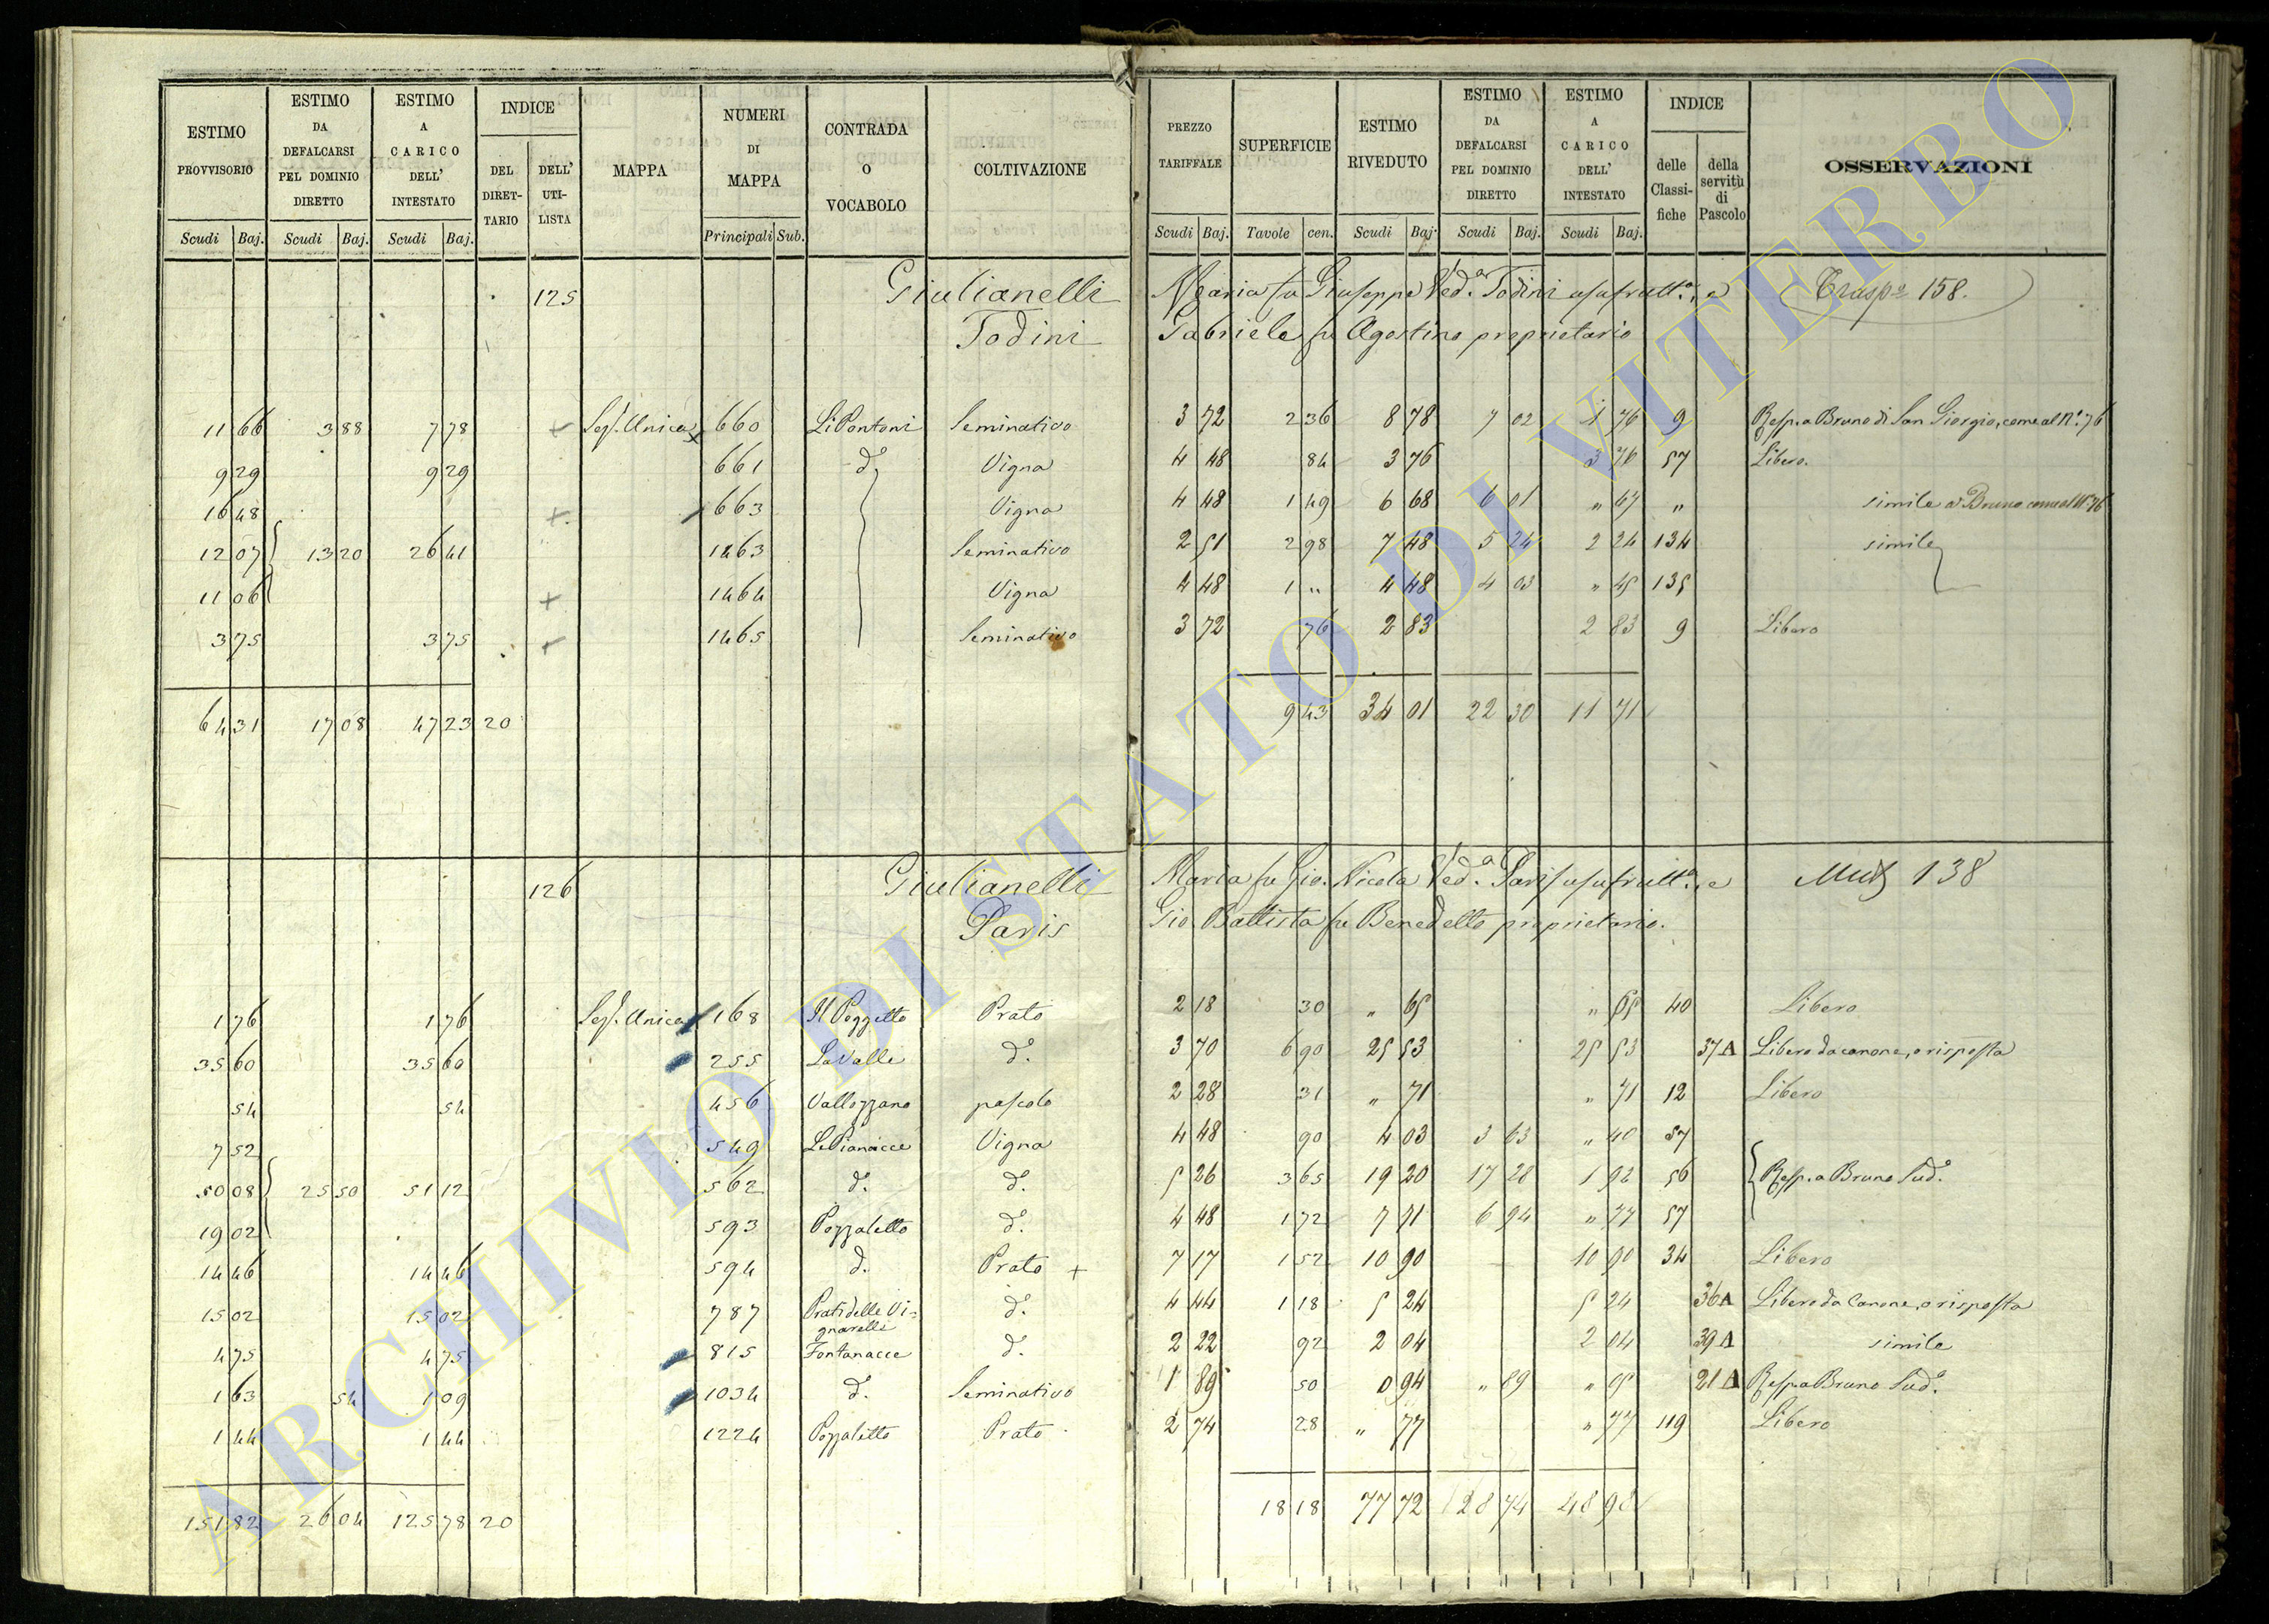 ESTIMO PROVVISORIO | ESTIMO DA DEFALCARSI PEL DOMINIO DIRETTO | ESTIMO A CARICO DELL' INTESTATO | INDICE DEL DIRET- TARIO | DELL' UTI- LISTA | MAPPA | NUMERI DI MAPPA | CONTRADA O VOCABOLO | COLTIVAZIONE | PREZZO TARIFFALE | SUPERFICIE | ESTIMO RIVEDUTO | ESTIMO DA DEFALCARSI PEL DOMINIO DIRETTO | ESTIMO A CARICO DELL' INTESTATO | INDICE delle Classi- fiche | della servitù di Pascolo | OSSERVAZIONI
Scudi Baj. | Scudi Baj. | Scudi Baj. | Principali Sub. | Scudi Baj. | Tavole cen. | Scudi Baj. | Scudi Baj. | Scudi Baj.
125 Giulianelli Maria fu Giuseppe Ved.a Todini usufrutt.a, e Trasp.o 158.
Todini Gabriele fu Agostino proprietario
11 66 | 3 88 | 7 78 | Sez. Unica | 660 | Li Pontoni | Seminativo | 3 72 | 2 36 | 8 78 | 7 02 | 1 76 | 9 | Resp. a Bruno di San Giorgio, come al N.o 76
9 29 | 9 29 | 661 | d.o | Vigna | 4 48 | 84 | 3 76 | 3 76 | 57 | Libero.
16 48 | 663 | Vigna | 4 48 | 1 49 | 6 68 | 6 01 | " 67 | " | simile a Bruno come al N.o 76
12 07 | 13 20 | 26 41 | 1463 | Seminativo | 2 51 | 2 98 | 7 48 | 5 24 | 2 24 | 134 | simile
11 06 | 1464 | Vigna | 4 48 | 1 " | 4 48 | 4 03 | " 45 | 135
3 75 | 3 75 | 1465 | Seminativo | 3 72 | 76 | 2 83 | 2 83 | 9 | Libero
64 31 | 17 08 | 47 23 | 20 | 9 43 | 34 01 | 22 30 | 11 71
126 Giulianelli Maria fu Gio. Nicola Ved.a Paris usufrutt.a, e 138
Paris Gio. Battista fu Benedetto proprietario.
1 76 | 1 76 | Sez. Unica | 168 | Il Poggetto | Prato | 2 18 | 30 | " 65 | " 65 | 40 | Libero
35 60 | 35 60 | 255 | La Valle | d.o | 3 70 | 6 90 | 25 53 | 25 53 | 37 A | Libero da canone, o risposta
54 | 54 | 456 | Vallozzano | pascolo | 2 28 | 31 | " 71 | " 71 | 12 | Libero
7 52 | 549 | Le Pianacce | Vigna | 4 48 | 90 | 4 03 | 3 63 | " 40 | 57
50 08 | 25 50 | 51 12 | 562 | d.o | d.o | 5 26 | 3 65 | 19 20 | 17 28 | 1 92 | 56 | Resp. a Bruno Sud.o
19 02 | 593 | Pozzaletto | d.o | 4 48 | 1 72 | 7 71 | 6 94 | " 77 | 57
14 46 | 14 46 | 594 | d.o | Prato + | 7 17 | 1 52 | 10 90 | 10 90 | 34 | Libero
15 02 | 15 02 | 787 | Prati delle Vi= gnarelle | d.o | 4 44 | 1 18 | 5 24 | 5 24 | 36 A | Libero da Canone, o risposta
4 75 | 4 75 | 815 | Fontanacce | d.o | 2 22 | 92 | 2 04 | 2 04 | 39 A | simile
1 63 | 54 | 1 09 | 1034 | d.o | Seminativo | 1 89 | 50 | 0 94 | " 89 | " 05 | 21 A | Resp. a Bruno Sud.o
1 44 | 1 44 | 1224 | Pozzaletto | Prato | 2 74 | 28 | " 77 | " 77 | 119 | Libero
151 82 | 26 04 | 125 78 | 20 | 18 18 | 77 72 | 28 74 | 48 98
ARCHIVIO DI STATO DI VITERBO